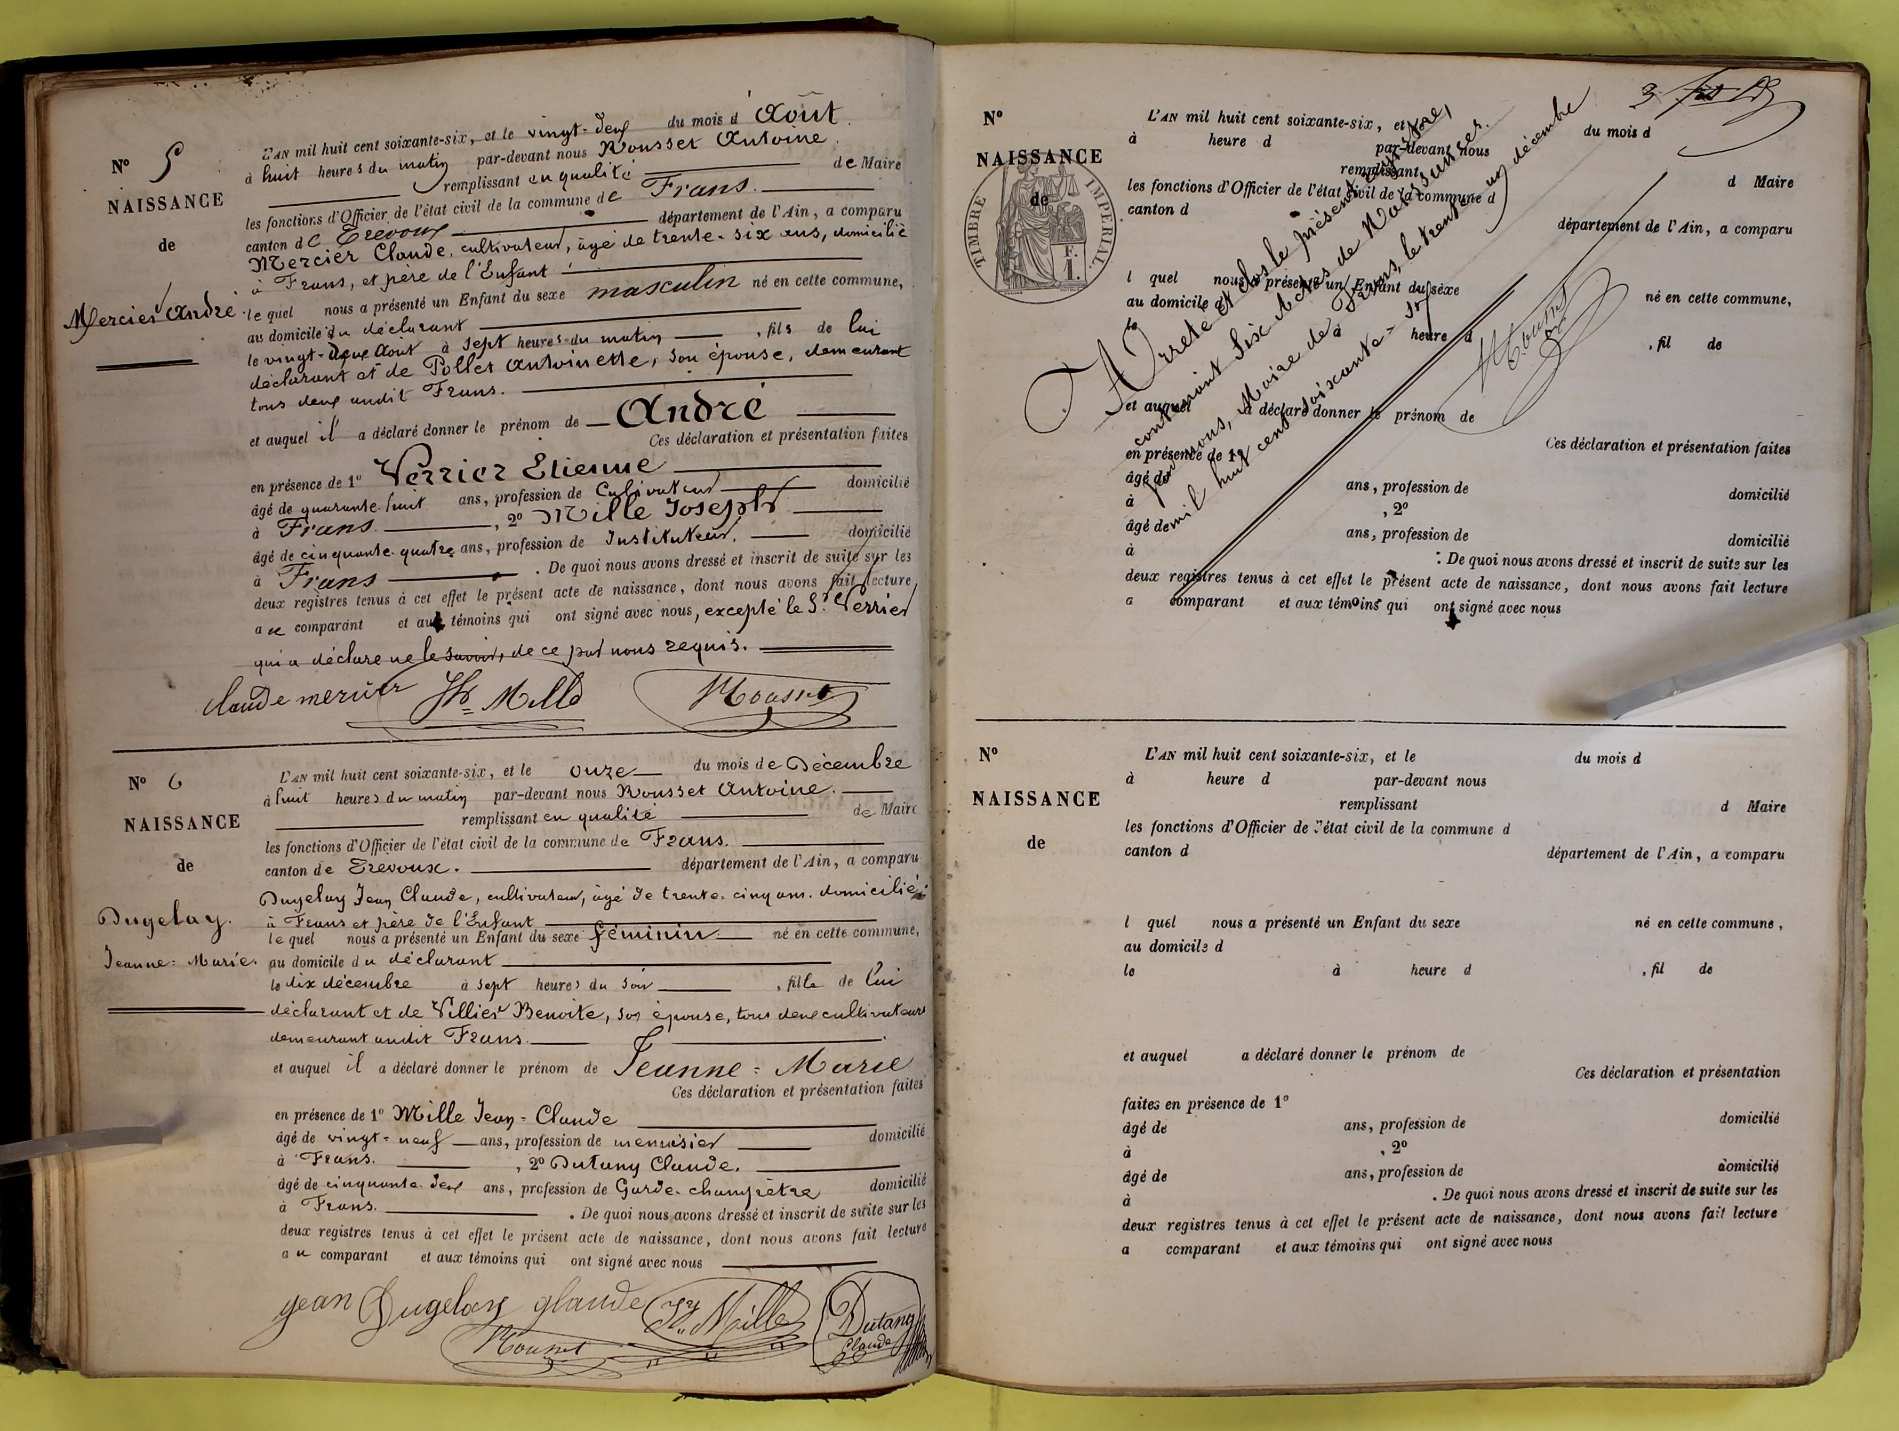 N° 5
NAISSANCE
de
Mercier André
L'AN mil huit cent soixante-six, et le vingt-deux du mois d'Août
à huit heures du matin par-devant nous Rousset Antoine
remplissant en qualité de Maire
les fonctions d'Officier de l'état civil de la commune de Frans
canton de Trevoux département de l'Ain, a comparu
Mercier Claude, cultivateur, âgé de trente-six ans, domicilié
à Frans, et père de l'Enfant
le quel nous a présenté un Enfant du sexe masculin né en cette commune,
au domicile du déclarant
le vingt-deux Août à sept heures du matin, fils de lui
déclarant et de Pollet Antoinette, son épouse, demeurant
tous deux audit Frans.
et auquel il a déclaré donner le prénom de André
Ces déclaration et présentation faites
en présence de 1° Verrier Etienne
âgé de quarante-huit ans, profession de Cultivateur domicilié
à Frans, 2° Mille Joseph
âgé de cinquante-quatre ans, profession de Instituteur. domicilié
à Frans. De quoi nous avons dressé et inscrit de suite sur les
deux registres tenus à cet effet le présent acte de naissance, dont nous avons fait lecture
au comparant et aux témoins qui ont signé avec nous, excepté le Sr. Verrier
qui a déclaré ne le savoir, de ce par nous requis.
Claude mercier Jh Mille Rousset
N° 6
NAISSANCE
de
Dugelay.
Jeanne=Marie.
L'AN mil huit cent soixante-six, et le onze du mois de Décembre
à huit heures du matin par-devant nous Rousset Antoine.
remplissant en qualité de Maire
les fonctions d'Officier de l'état civil de la commune de Frans.
canton de Trevoux. département de l'Ain, a comparu
Dugelay Jean Claude, cultivateur, âgé de trente-cinq ans. domicilié
à Frans et père de l'Enfant
le quel nous a présenté un Enfant du sexe féminin né en cette commune,
au domicile du déclarant
le dix décembre à sept heures du soir, fille de lui
déclarant et de Villier Benoite, son épouse, tous deux cultivateurs
demeurant audit Frans.
et auquel il a déclaré donner le prénom de Jeanne=Marie
Ces déclaration et présentation faites
en présence de 1° Mille Jean-Claude
âgé de vingt-neuf ans, profession de menuisier domicilié
à Frans., 2° Dutang Claude.
âgé de cinquante-deux ans, profession de Garde-champêtre domicilié
à Frans.. De quoi nous avons dressé et inscrit de suite sur les
deux registres tenus à cet effet le présent acte de naissance, dont nous avons fait lecture
au comparant et aux témoins qui ont signé avec nous
jean Dugelay glaude Mille Dutang
Rousset Claude
3
N°
NAISSANCE
de
TIMBRE IMPERIAL.
F. 1.
L'AN mil huit cent soixante-six, et le du mois d
à heure d par-devant nous
remplissant d Maire
les fonctions d'Officier de l'état civil de la commune d
canton d département de l'Ain, a comparu
l quel nous a présenté un Enfant du sexe né en cette commune,
au domicile d
à heure d, fil de
et auquel a déclaré donner le prénom de
Ces déclaration et présentation faites
en présence de 1°
âgé de ans, profession de domicilié
à, 2°
âgé de ans, profession de domicilié
à. De quoi nous avons dressé et inscrit de suite sur les
deux registres tenus à cet effet le présent acte de naissance, dont nous avons fait lecture
a comparant et aux témoins qui ont signé avec nous
Arrêté et clos le présent registre,
contenant Six Actes de Naissances.
par nous, Maire de Frans, le trente un décembre
mil huit cent soixante=six
Rousset
N°
NAISSANCE
de
L'AN mil huit cent soixante-six, et le du mois d
à heure d par-devant nous
remplissant d Maire
les fonctions d'Officier de l'état civil de la commune d
canton d département de l'Ain, a comparu
l quel nous a présenté un Enfant du sexe né en cette commune,
au domicile d
le à heure d, fil de
et auquel a déclaré donner le prénom de
Ces déclaration et présentation
faites en présence de 1°
âgé de ans, profession de domicilié
à, 2°
âgé de ans, profession de domicilié
à. De quoi nous avons dressé et inscrit de suite sur les
deux registres tenus à cet effet le présent acte de naissance, dont nous avons fait lecture
a comparant et aux témoins qui ont signé avec nous